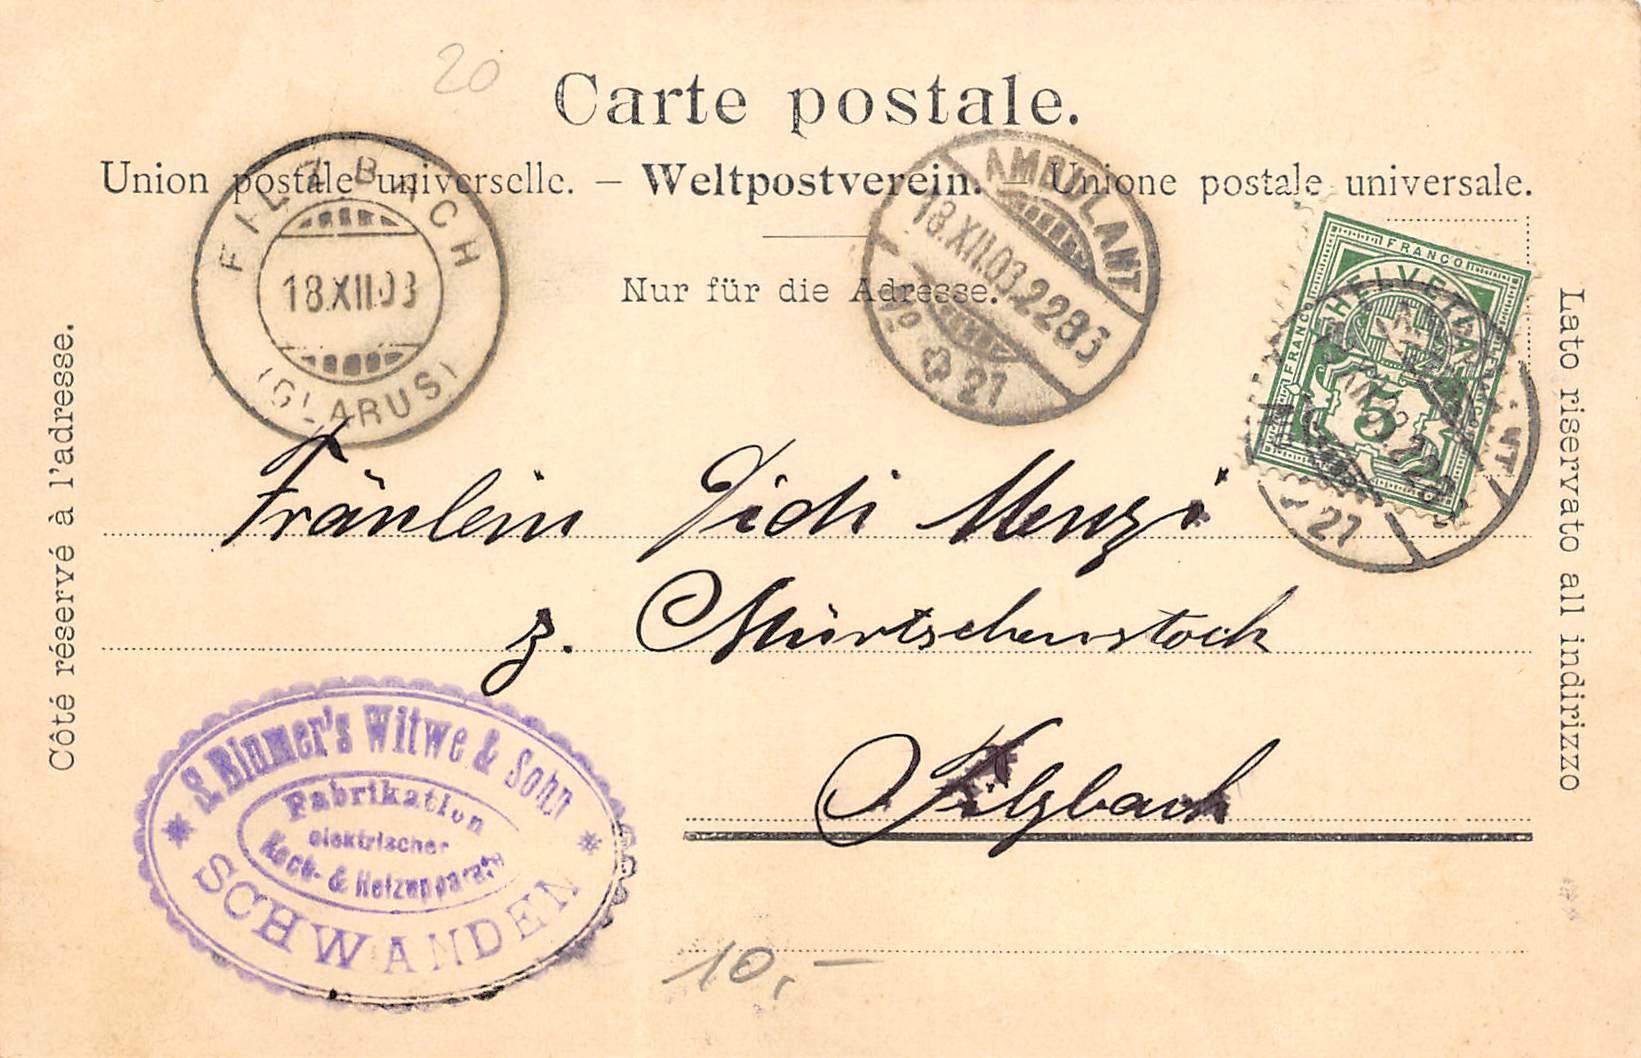 20
Carte postale.
Union postale universelle. – Weltpostverein. – Unione postale universale.
Nur für die Adresse.
Côté réservé à l'adresse.
Lato riservato all indirizzo
FILZBACH
18.XII.03
(GLARUS)
AMBULANT
18.XII.03.2283
No 21
FRANCO
HELVETIA
FRANCO
FRANCO
5
21
Fräulein Jidi Menzi
z. Mürtschenstock
Filzbach
S. Blumer's Witwe & Sohn
Fabrikation
elektrischer
Koch- & Heizapparate
SCHWANDEN
10,–